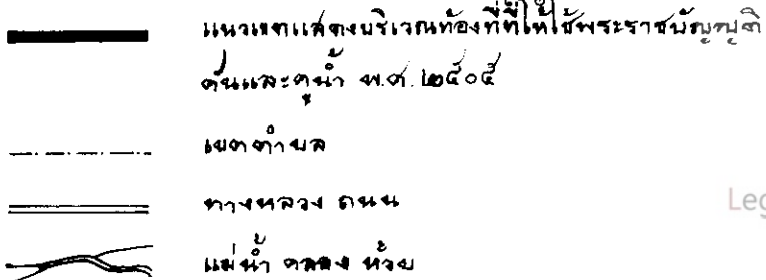 แนวเขตแสดงบริเวณท้องที่ที่ให้ใช้พระราชบัญญัติ
คันและคูน้ำ พ.ศ. ๒๕๐๕
เขตตำบล
ทางหลวง ถนน
Leg
แม่น้ำ คลอง ห้วย